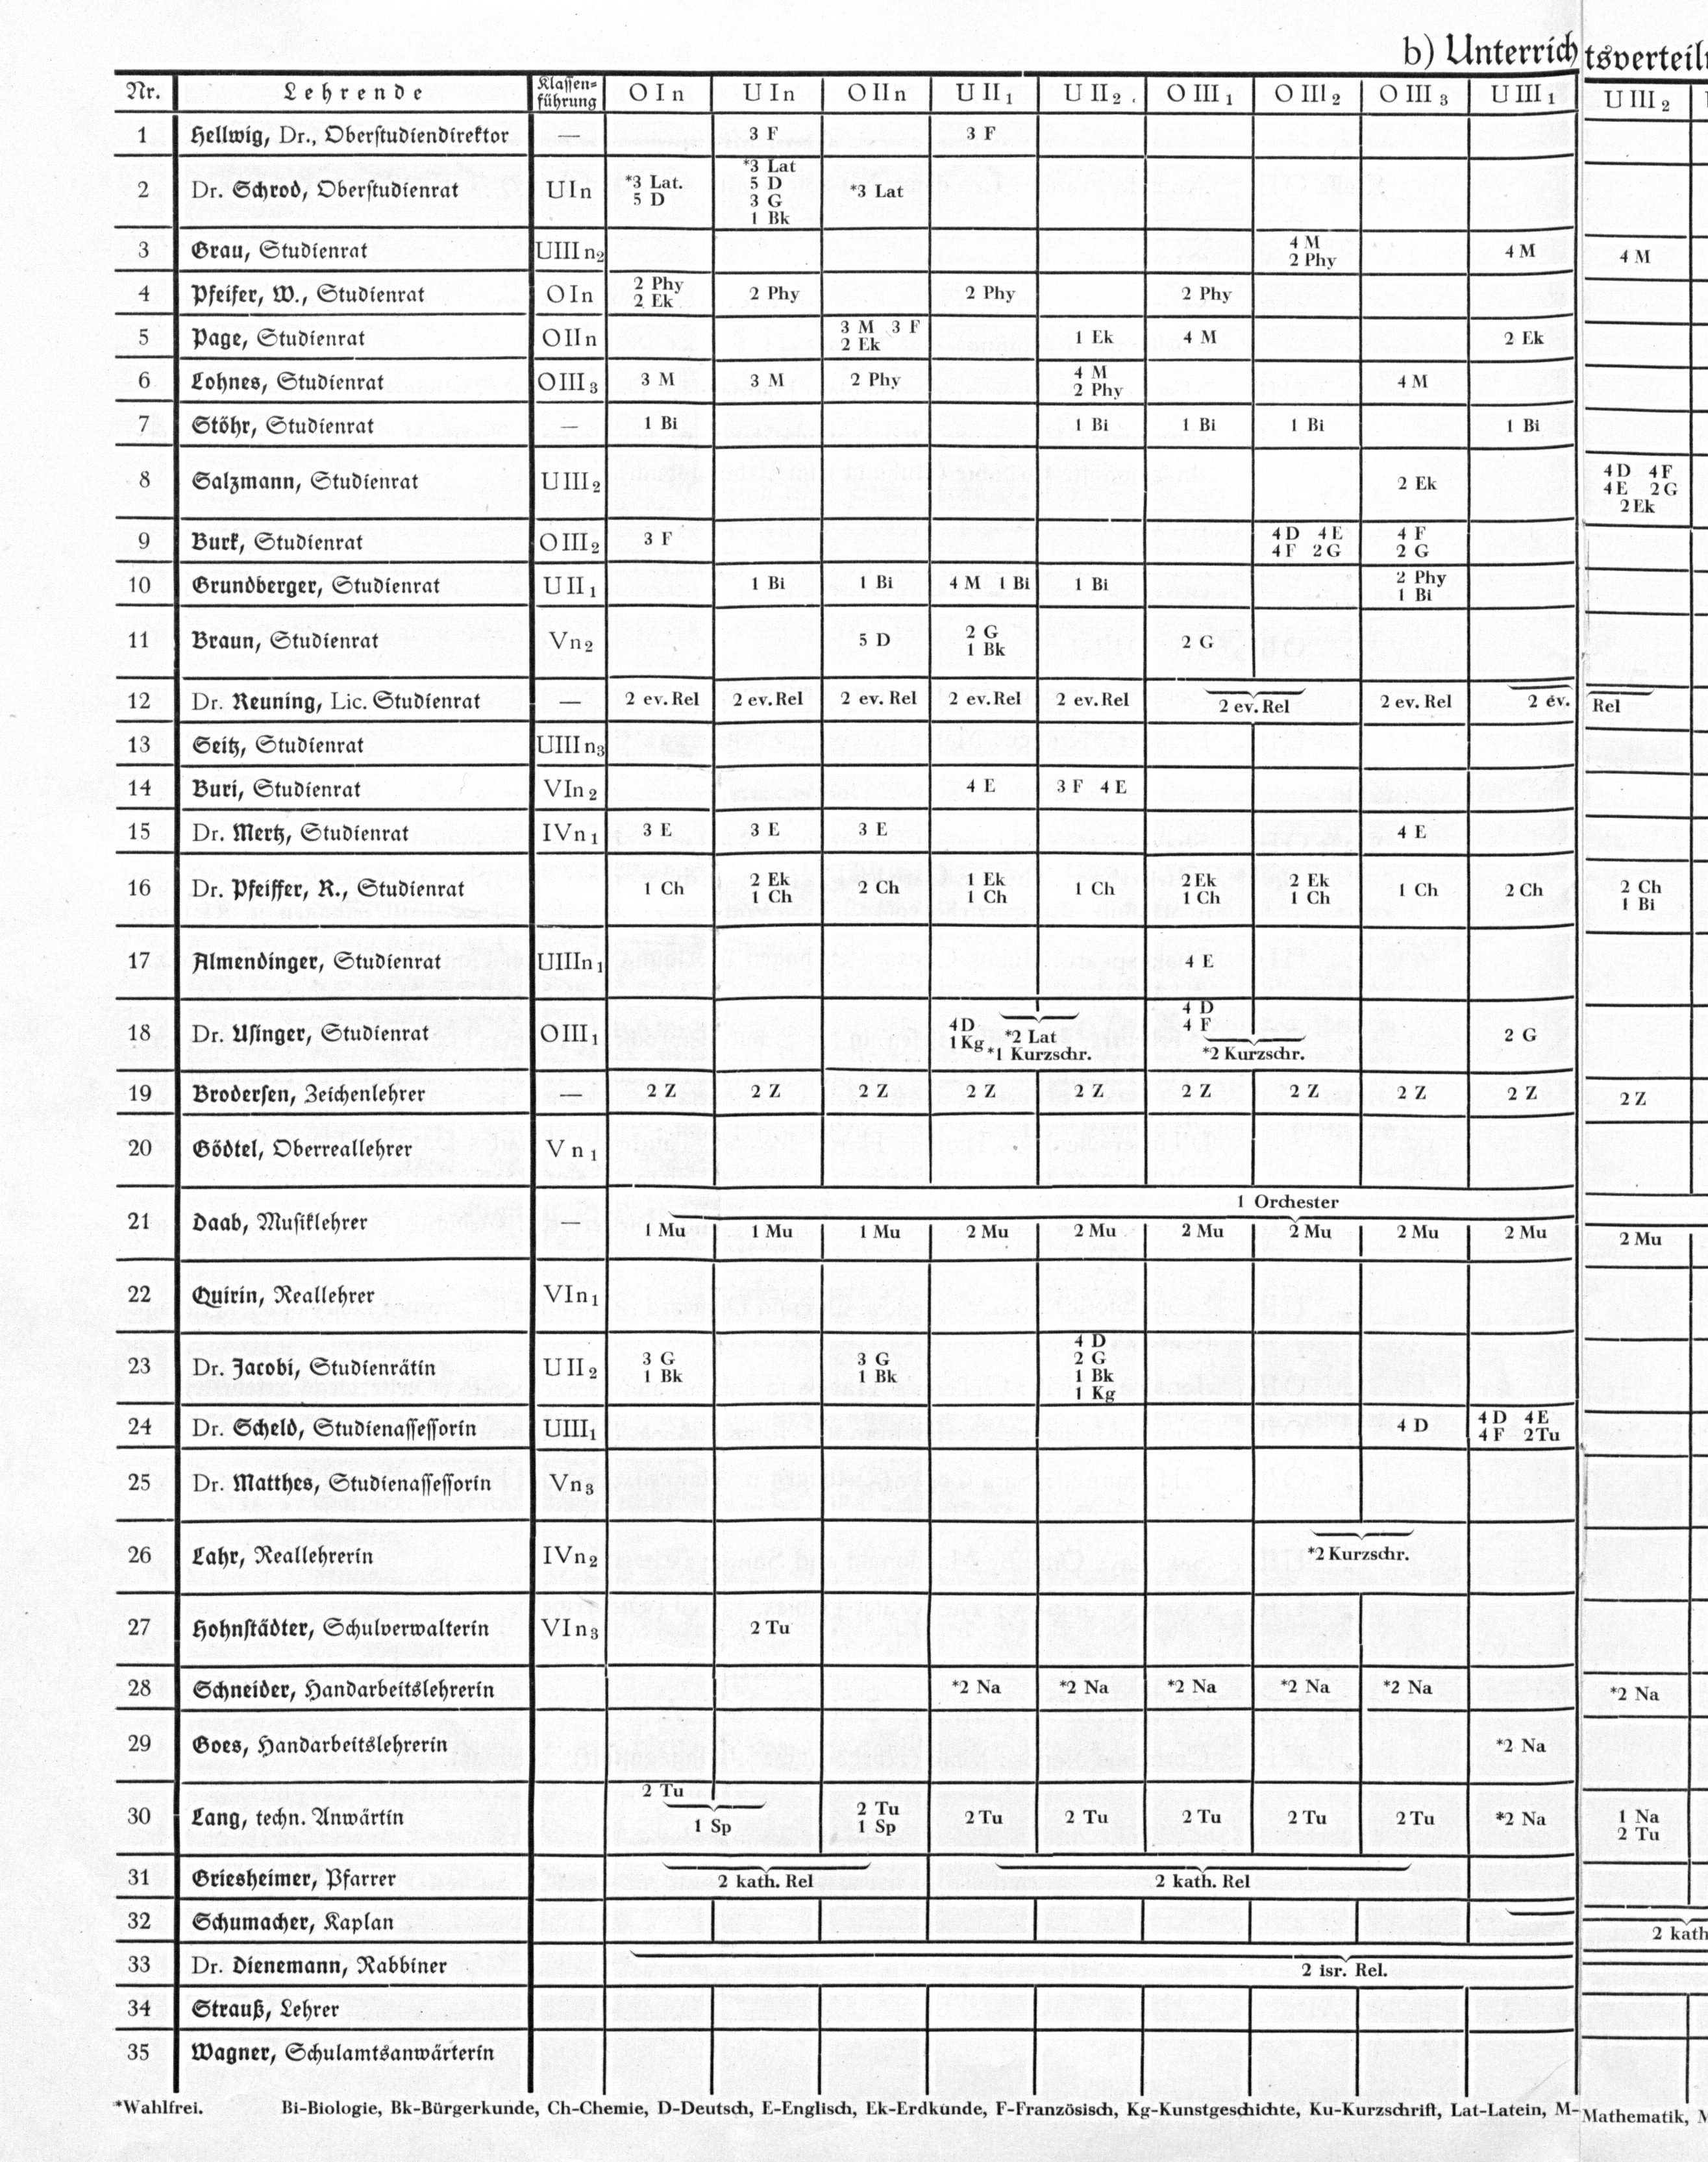 b) Unterrichtsverteil
Nr. Lehrende Klassen=führung O I n U I n O II n U II 1 U II 2 O III 1 O III 2 O III 3 U III 1 U III 2
1 Hellwig, Dr., Oberstudiendirektor — 3 F 3 F
*3 Lat
2 Dr. Schrod, Oberstudienrat U I n *3 Lat. 5 D *3 Lat
5 D 3 G
1 Bk
3 Grau, Studienrat U III n2 4 M 4 M 4 M
2 Phy
4 Pfeifer, W., Studienrat O I n 2 Phy 2 Phy 2 Phy 2 Phy
2 Ek
5 Page, Studienrat O II n 3 M 3 F 1 Ek 4 M 2 Ek
2 Ek
6 Lohnes, Studienrat O III 3 3 M 3 M 2 Phy 4 M 4 M
2 Phy
7 Stöhr, Studienrat — 1 Bi 1 Bi 1 Bi 1 Bi 1 Bi
8 Salzmann, Studienrat U III 2 2 Ek 4 D 4 F
4 E 2 G
2 Ek
9 Burk, Studienrat O III 2 3 F 4 D 4 E 4 F
4 F 2 G 2 G
10 Grundberger, Studienrat U II 1 1 Bi 1 Bi 4 M 1 Bi 1 Bi 2 Phy
1 Bi
11 Braun, Studienrat V n2 5 D 2 G 2 G
1 Bk
12 Dr. Reuning, Lic. Studienrat — 2 ev. Rel 2 ev. Rel 2 ev. Rel 2 ev. Rel 2 ev. Rel 2 ev. Rel 2 ev. Rel 2 ev. Rel
13 Seitz, Studienrat U III n3
14 Buri, Studienrat VI n 2 4 E 3 F 4 E
15 Dr. Mertz, Studienrat IV n 1 3 E 3 E 3 E 4 E
16 Dr. Pfeiffer, R., Studienrat — 1 Ch 2 Ek 2 Ch 1 Ek 1 Ch 2 Ek 2 Ek 1 Ch 2 Ch 2 Ch
1 Ch 1 Ch 1 Ch 1 Ch 1 Bi
17 Almendinger, Studienrat U III n 1 4 E
18 Dr. Usinger, Studienrat O III 1 4 D 4 D 2 G
1 Kg *2 Lat 4 F
*1 Kurzschr. *2 Kurzschr.
19 Brodersen, Zeichenlehrer — 2 Z 2 Z 2 Z 2 Z 2 Z 2 Z 2 Z 2 Z 2 Z 2 Z
20 Gödtel, Oberreallehrer V n 1
1 Orchester
21 Daab, Musiklehrer 1 Mu 1 Mu 1 Mu 2 Mu 2 Mu 2 Mu 2 Mu 2 Mu 2 Mu 2 Mu
22 Quirin, Reallehrer VI n 1
23 Dr. Jacobi, Studienrätin U II 2 3 G 3 G 4 D
1 Bk 1 Bk 2 G
1 Bk
1 Kg
24 Dr. Scheld, Studienassessorin U III 1 4 D 4 D 4 E
4 F 2 Tu
25 Dr. Matthes, Studienassessorin V n3
26 Lahr, Reallehrerin IV n2 *2 Kurzschr.
27 Hohnstädter, Schulverwalterin VI n3 2 Tu
28 Schneider, Handarbeitslehrerin *2 Na *2 Na *2 Na *2 Na *2 Na *2 Na
29 Goes, Handarbeitslehrerin *2 Na
30 Lang, techn. Anwärtin 2 Tu 2 Tu 2 Tu 2 Tu 2 Tu 2 Tu 2 Tu *2 Na 1 Na
1 Sp 1 Sp 2 Tu
31 Griesheimer, Pfarrer 2 kath. Rel 2 kath. Rel
32 Schumacher, Kaplan 2 kath
33 Dr. Dienemann, Rabbiner 2 isr. Rel.
34 Strauß, Lehrer
35 Wagner, Schulamtsanwärterin
*Wahlfrei. Bi-Biologie, Bk-Bürgerkunde, Ch-Chemie, D-Deutsch, E-Englisch, Ek-Erdkunde, F-Französisch, Kg-Kunstgeschichte, Ku-Kurzschrift, Lat-Latein, M-Mathematik,